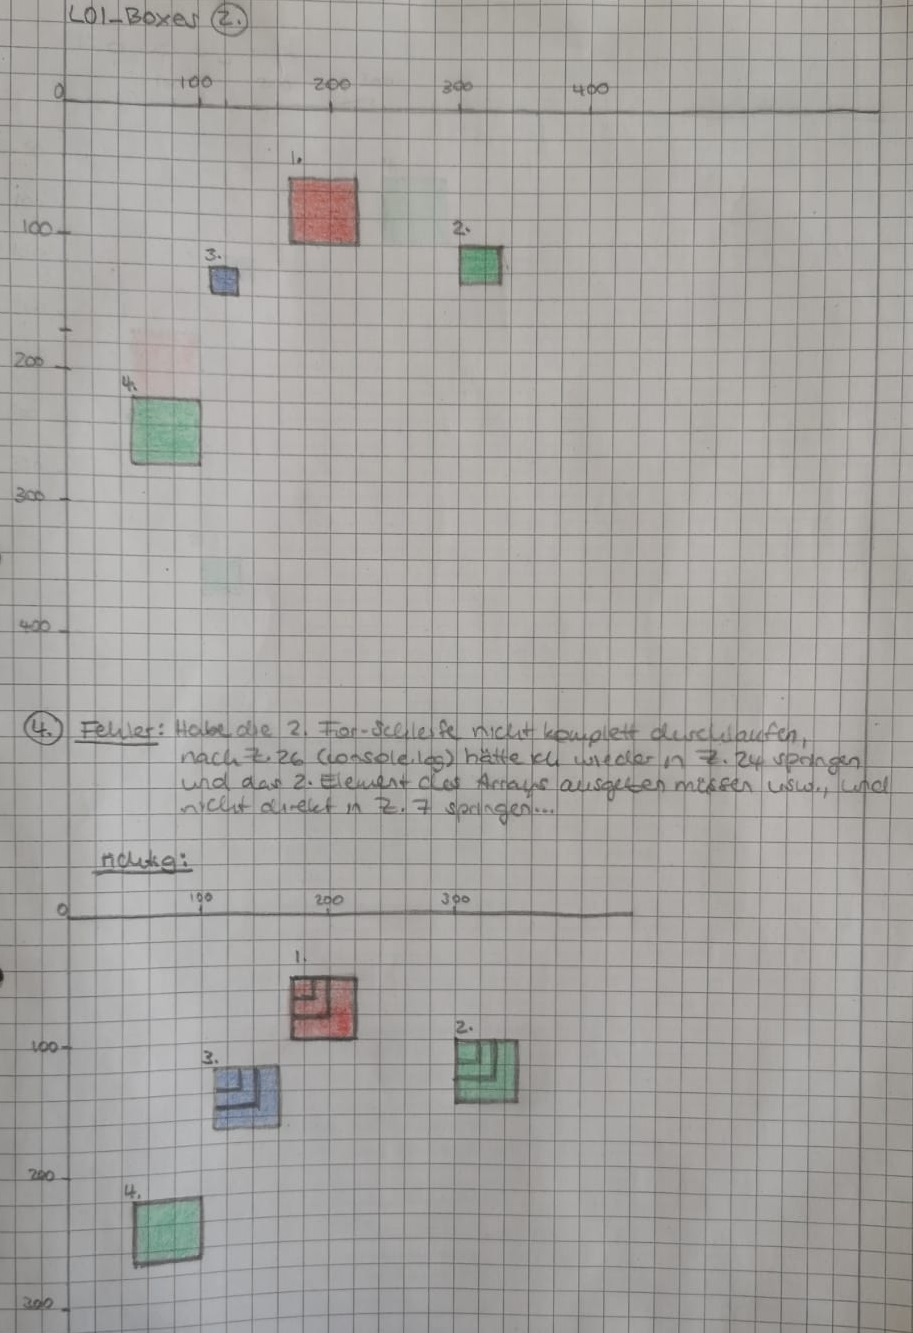 L01_Boxes 2.
0 100 200 300 400
1.
100
2.
3.
200
4.
300
400
4. Fehler: Habe die 2. For-Schleife nicht komplett durchlaufen,
nach Z. 26 (console.log) hätte ich wieder in Z. 24 springen
und das 2. Element des Arrays ausgeben müssen usw., und
nicht direkt in Z. 7 springen...
richtig:
0 100 200 300
1.
2.
100
3.
200
4.
300